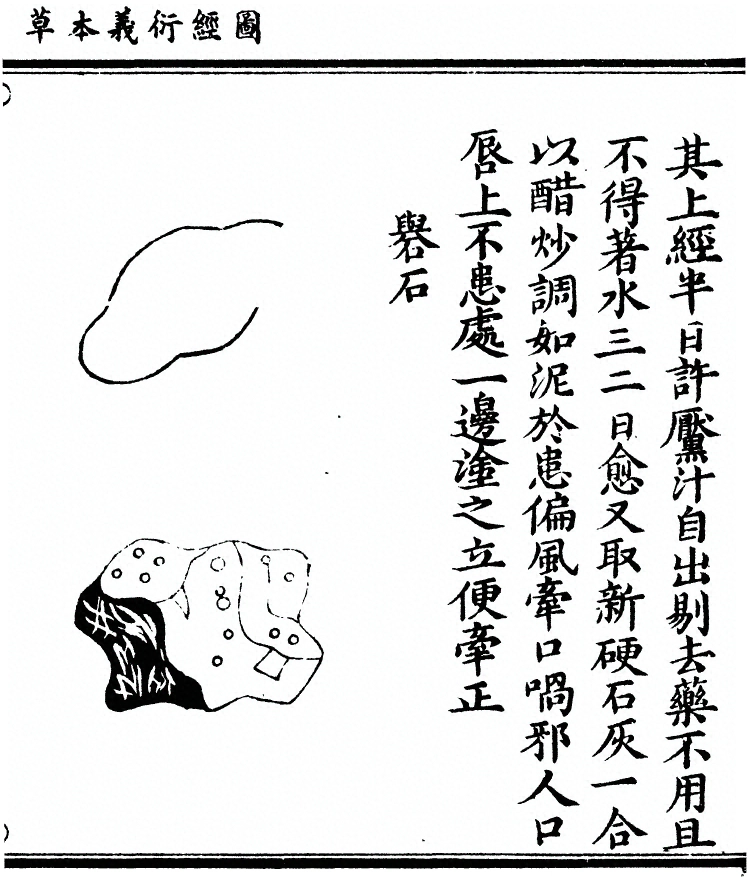 圖經衍義本草
其上經半日許黶汁自出剔去藥不用且
不得著水三二日愈又取新硬石灰一合
以醋炒調如泥於患偏風牽口喎邪人口
唇上不患處一邊塗之立便牽正
礜石